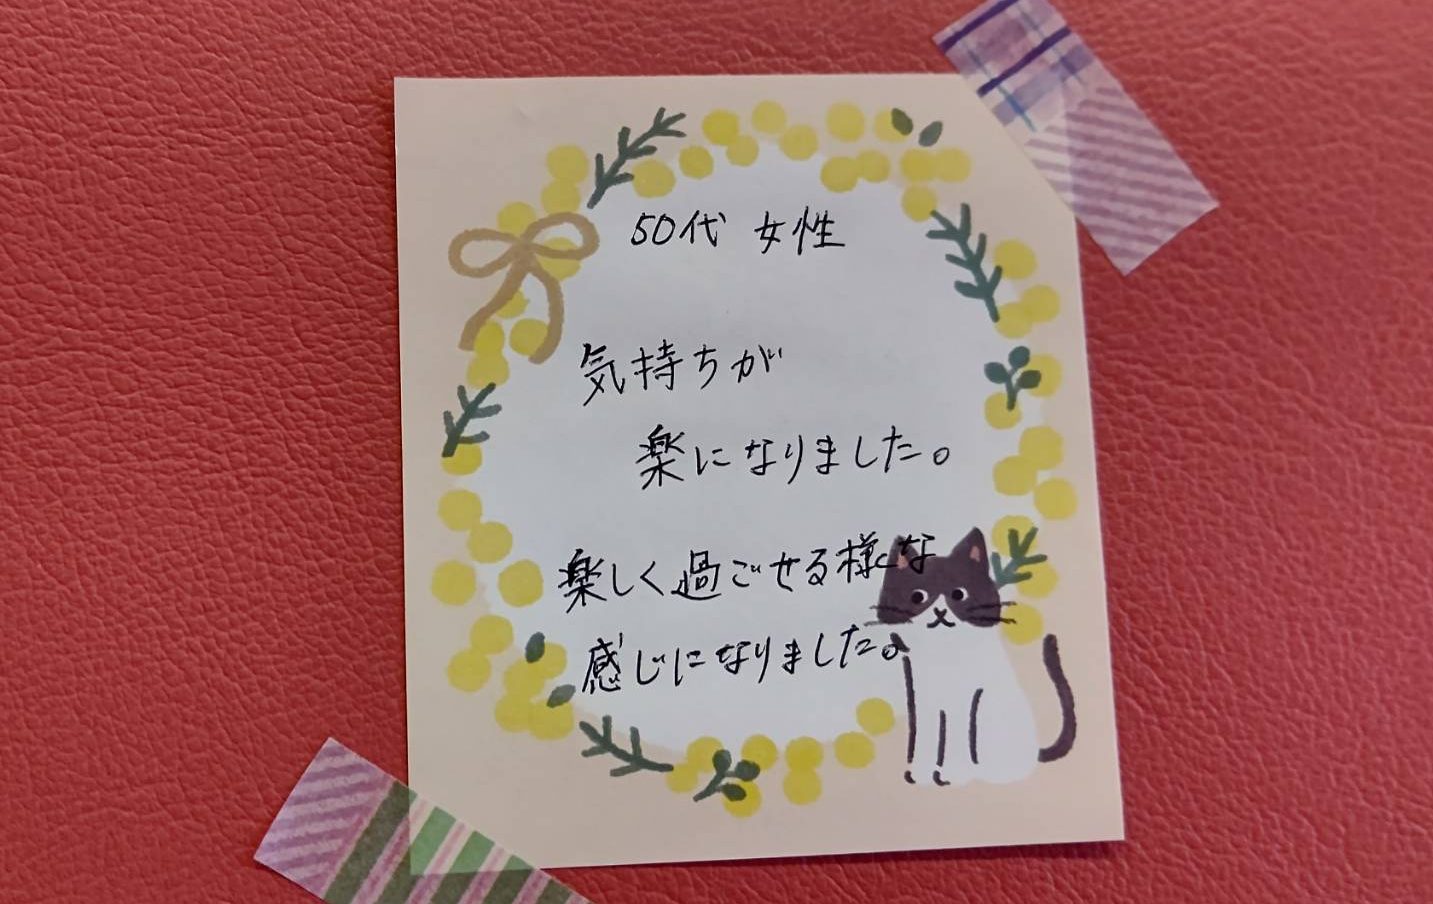 50代 女性
気持ちが
楽になりました。
楽しく過ごせる様な
感じになりました。